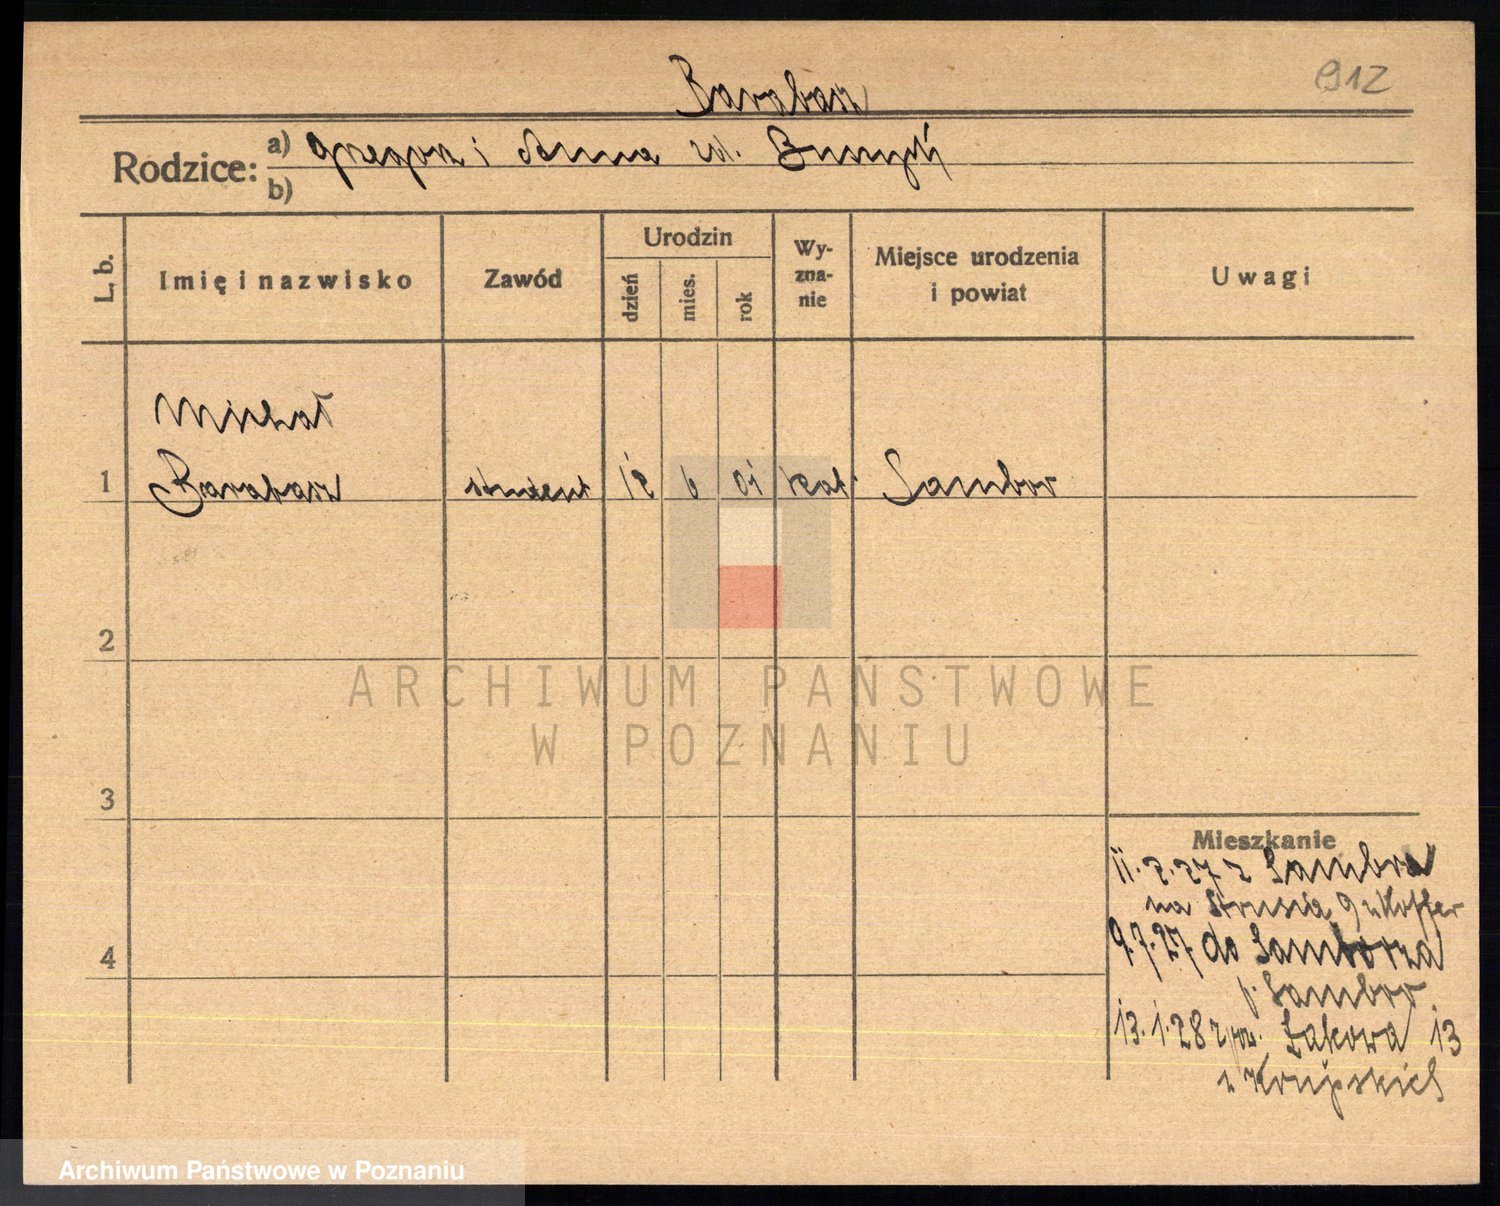 912
Barabasz
Rodzice: a) Grzegorz i Anna zd.
b)
L. b.
Imię i nazwisko
Zawód
Urodzin
dzień
mies.
rok
Wy-
zna-
nie
Miejsce urodzenia
i powiat
Uwagi
Michał
1 Barabasz student 12 6 01 kat. Sambor
2
ARCHIWUM PAŃSTWOWE
W POZNANIU
3
Mieszkanie
11.2.27 z Sambra
na Strusia 9 u Koffer
4 9.7.27 do Sambora
p. Sambor
13.1.28 Łąkowa 13
u Krupskich
Archiwum Państwowe w Poznaniu